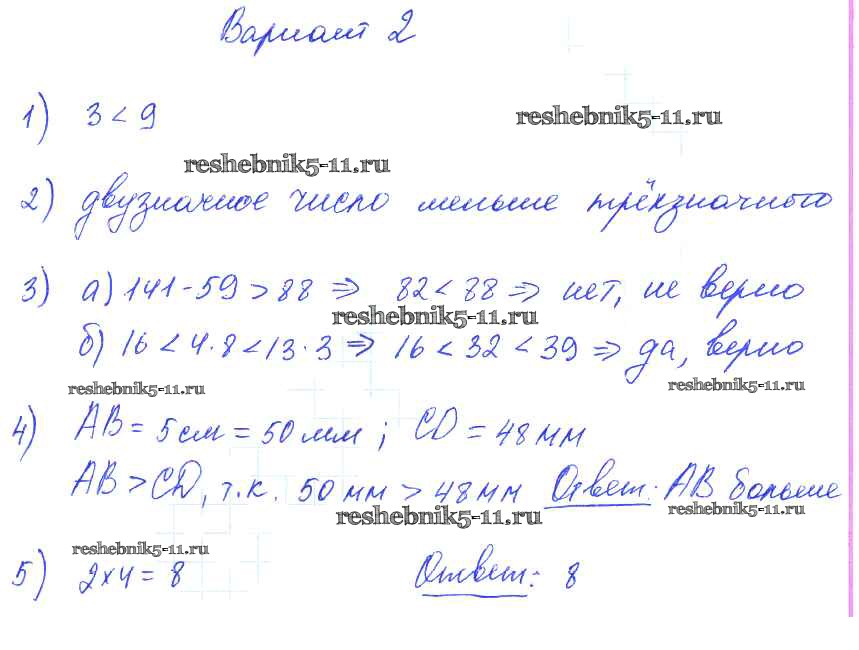 Вариант 2
1) 3 < 9
reshebnik5-11.ru
reshebnik5-11.ru
2) двузначное число меньше трёхзначного
3) а) 141 - 59 > 88 => 82 < 88 => нет, не верно
reshebnik5-11.ru
б) 16 < 4 · 8 < 13 · 3 => 16 < 32 < 39 => да, верно
reshebnik5-11.ru
reshebnik5-11.ru
4) AB = 5 см = 50 мм ; CD = 48 мм
AB > CD, т.к. 50 мм > 48 мм Ответ: AB больше
reshebnik5-11.ru
reshebnik5-11.ru
reshebnik5-11.ru
5) 2 × 4 = 8 Ответ: 8